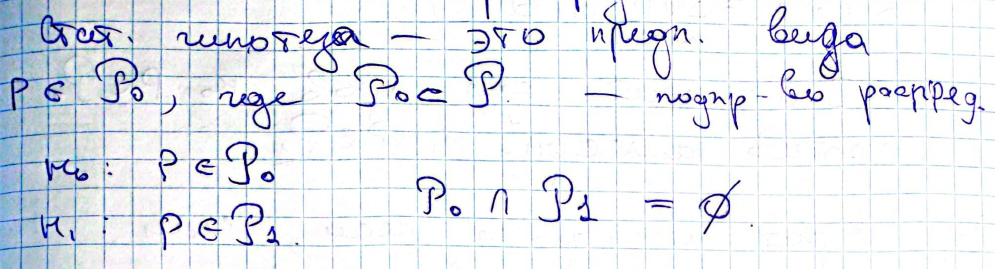 Стат. гипотеза — это предп. вида
P ∈ 𝒫₀, где 𝒫₀ ⊂ 𝒫. — подпр-во распред.
H₀: P ∈ 𝒫₀
𝒫₀ ∩ 𝒫₁ = ∅.
H₁: P ∈ 𝒫₁.